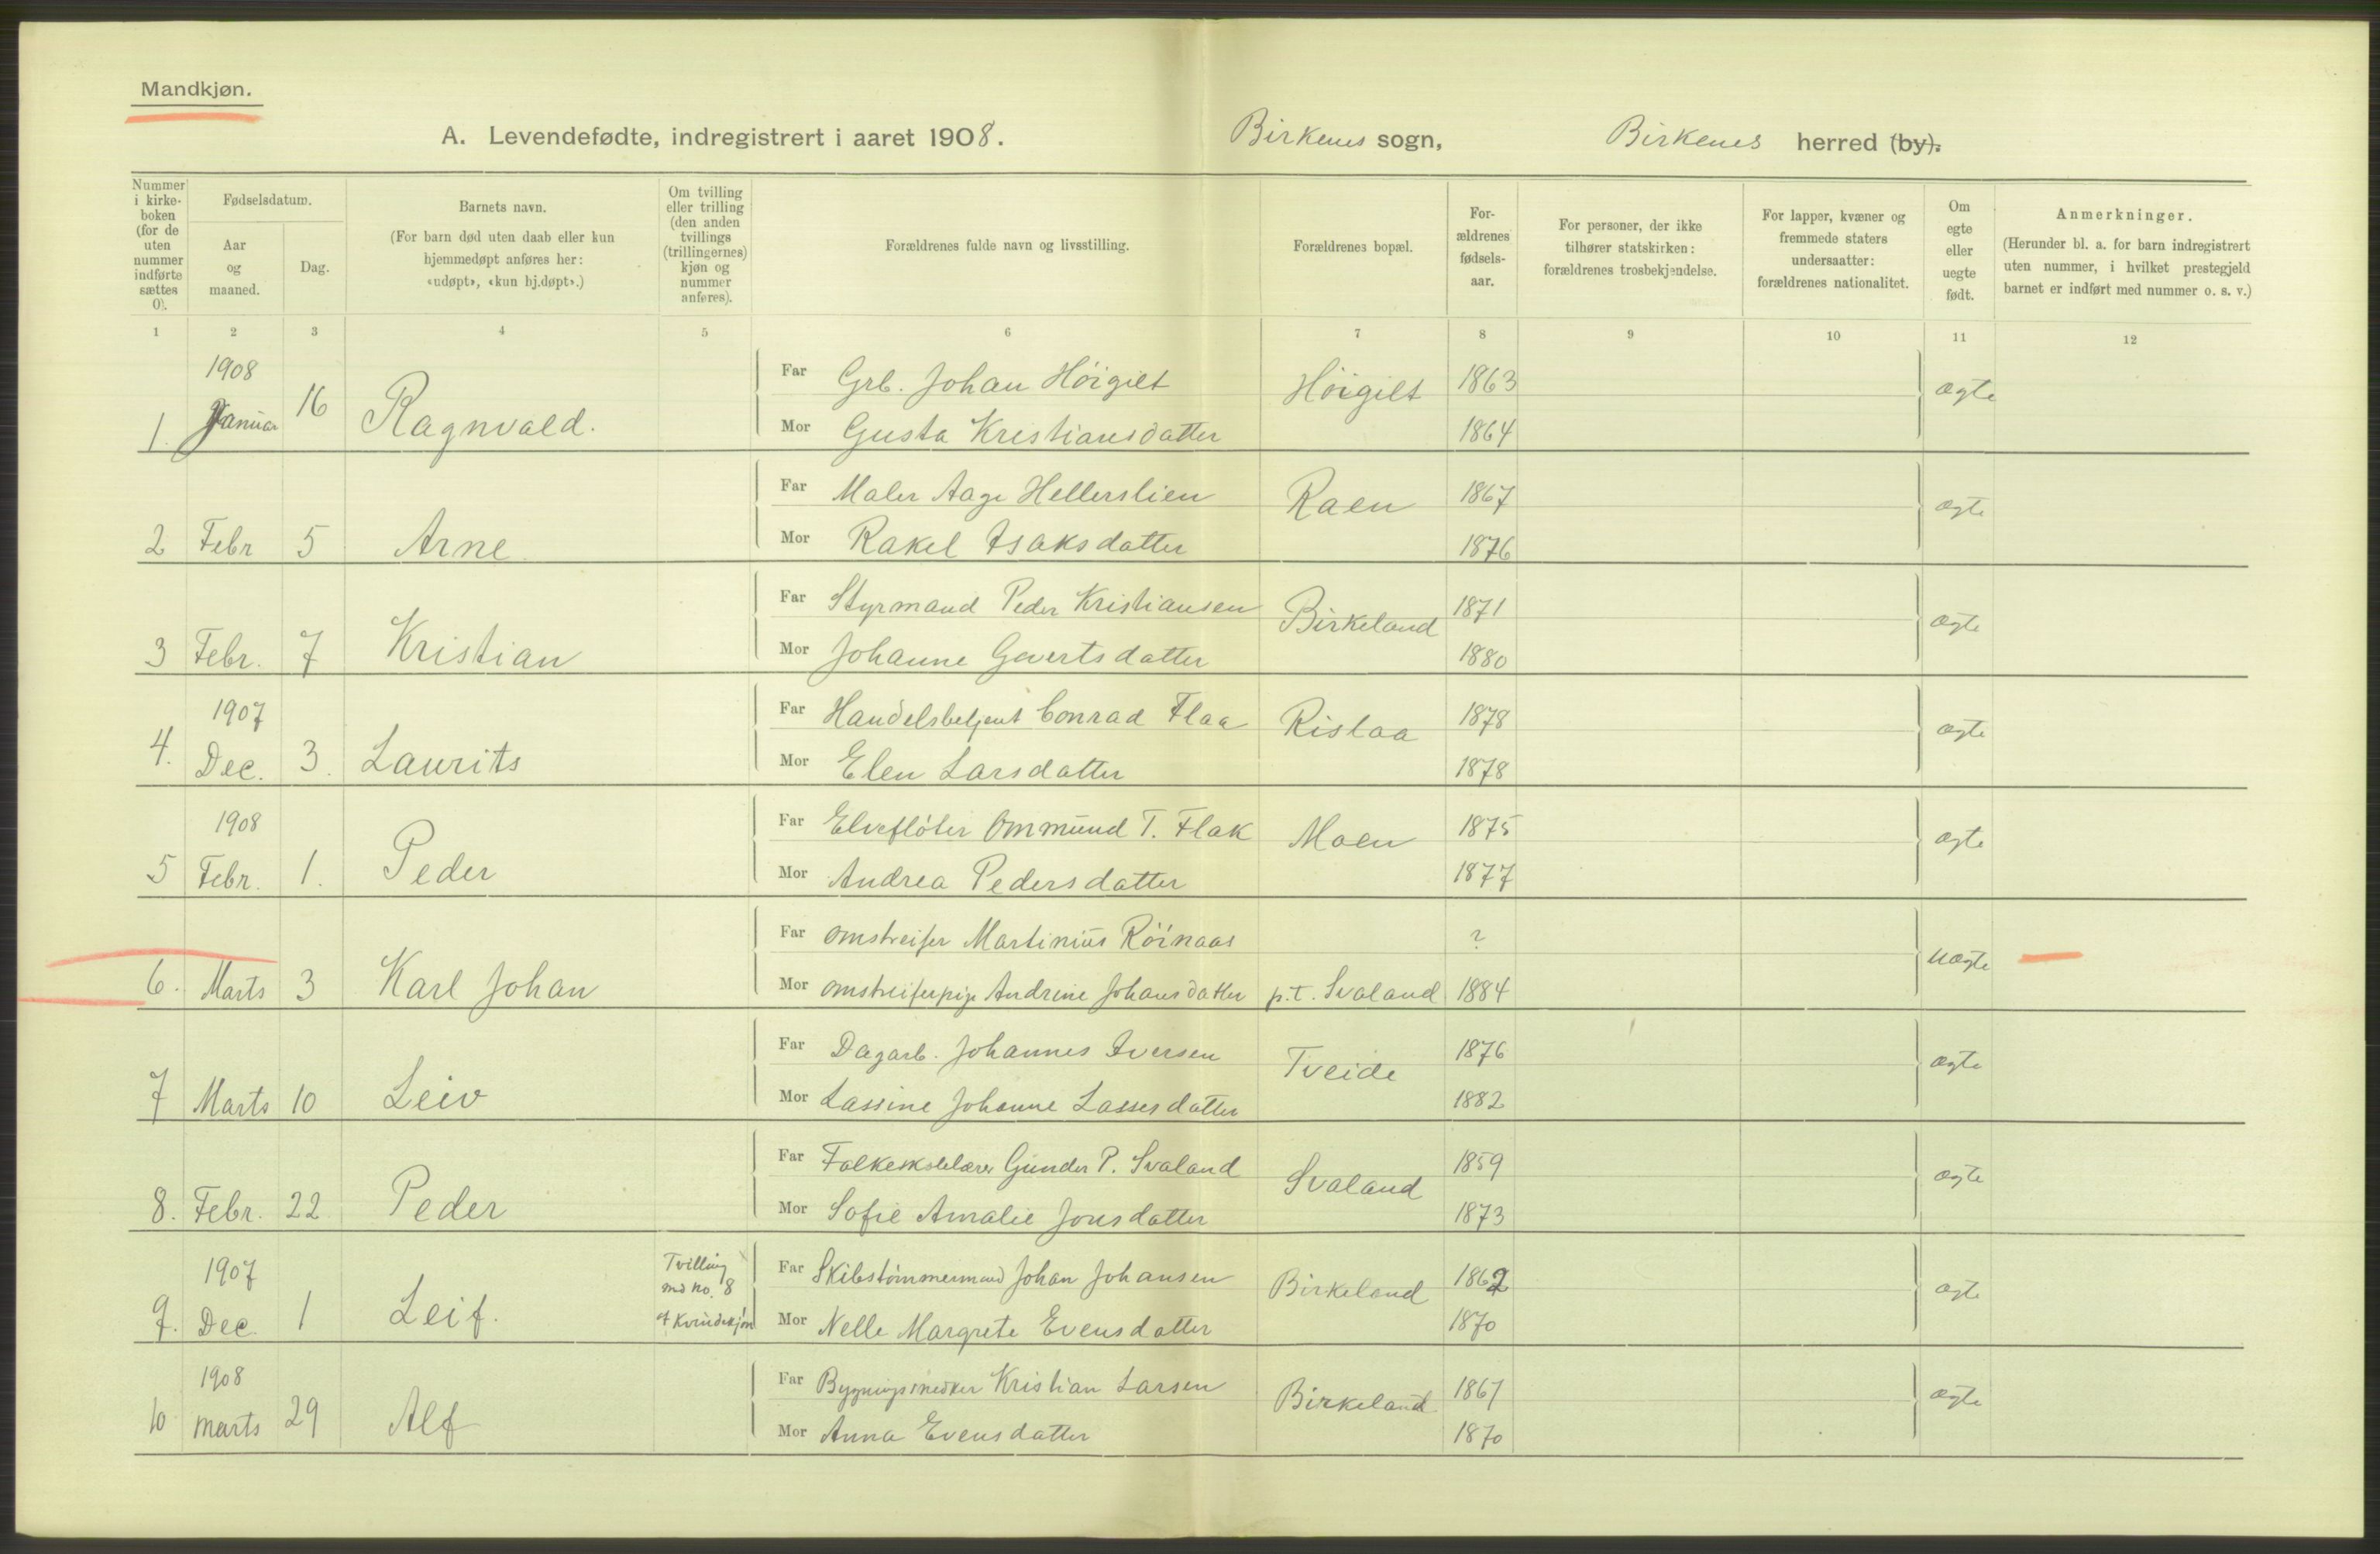 Mandkjøn.
A. Levendefødte, indregistrert i aaret 1908. Birkenes sogn, Birkenes herred (by).
Nummer i kirke-boken (for de uten nummer indførte sættes 0).
Fødselsdatum.
Aar og maaned.
Dag.
Barnets navn.
(For barn død uten daab eller kun hjemmedøpt anføres her: «udøpt», «kun hj.døpt».)
Om tvilling eller trilling (den anden tvillings (trillingernes) kjøn og nummer anføres).
Forældrenes fulde navn og livsstilling.
Forældrenes bopæl.
For-ældrenes fødsels-aar.
For personer, der ikke tilhører statskirken: forældrenes trosbekjendelse.
For lapper, kvæner og fremmede staters undersaatter: forældrenes nationalitet.
Om egte eller uegte født.
Anmerkninger.
(Herunder bl. a. for barn indregistrert uten nummer, i hvilket prestegjeld barnet er indført med nummer o. s. v.)
1 2 3 4 5 6 7 8 9 10 11 12
1908
1. Januar 16 Ragnvald. Far Grb. Johan Höigilt Höigilt 1863 ægte
Mor Gusta Kristiansdatter 1864
2 Febr 5 Arne Far Maler Aage Hellerslien Raen 1867 ægte
Mor Rakel Isaksdatter 1876
3 Febr. 7 Kristian Far Styrmand Peder Kristiansen Birkeland 1871 ægte
Mor Johanne Gevertsdatter 1880
1907
4. Dec. 3. Laurits Far Handelsbetjent Conrad Flaa Rislaa 1878 ægte
Mor Elen Larsdatter 1878
1908
5 Febr. 1. Peder Far Elvefløter Ommund T. Flak Moen 1875 ægte
Mor Andrea Pedersdatter 1877
6. Marts 3 Karl Johan Far omstreifer Martinius Röinaas ? uægte
Mor omstreiferpige Andrine Johansdatter p.t. Svaland 1884
7 Marts 10 Leiv Far Dagarb. Johannes Iversen Tveide 1876 ægte
Mor Lassine Johanne Lassesdatter 1882
8. Febr. 22 Peder Far Gunder P. Svaland Svaland 1859 ægte
Mor Sofie Amalie Jonsdatter 1873
1907
9. Dec. 1 Leif. Tvilling md no. 8 af Kvindekjön Far Skibstömmermand Johan Johansen Birkeland 1862 ægte
Mor Nelle Margrete Evensdatter 1870
1908
10 marts 29 Alf Far Bygningssnedker Kristian Larsen Birkeland 1867 ægte
Mor Anna Evensdatter 1870